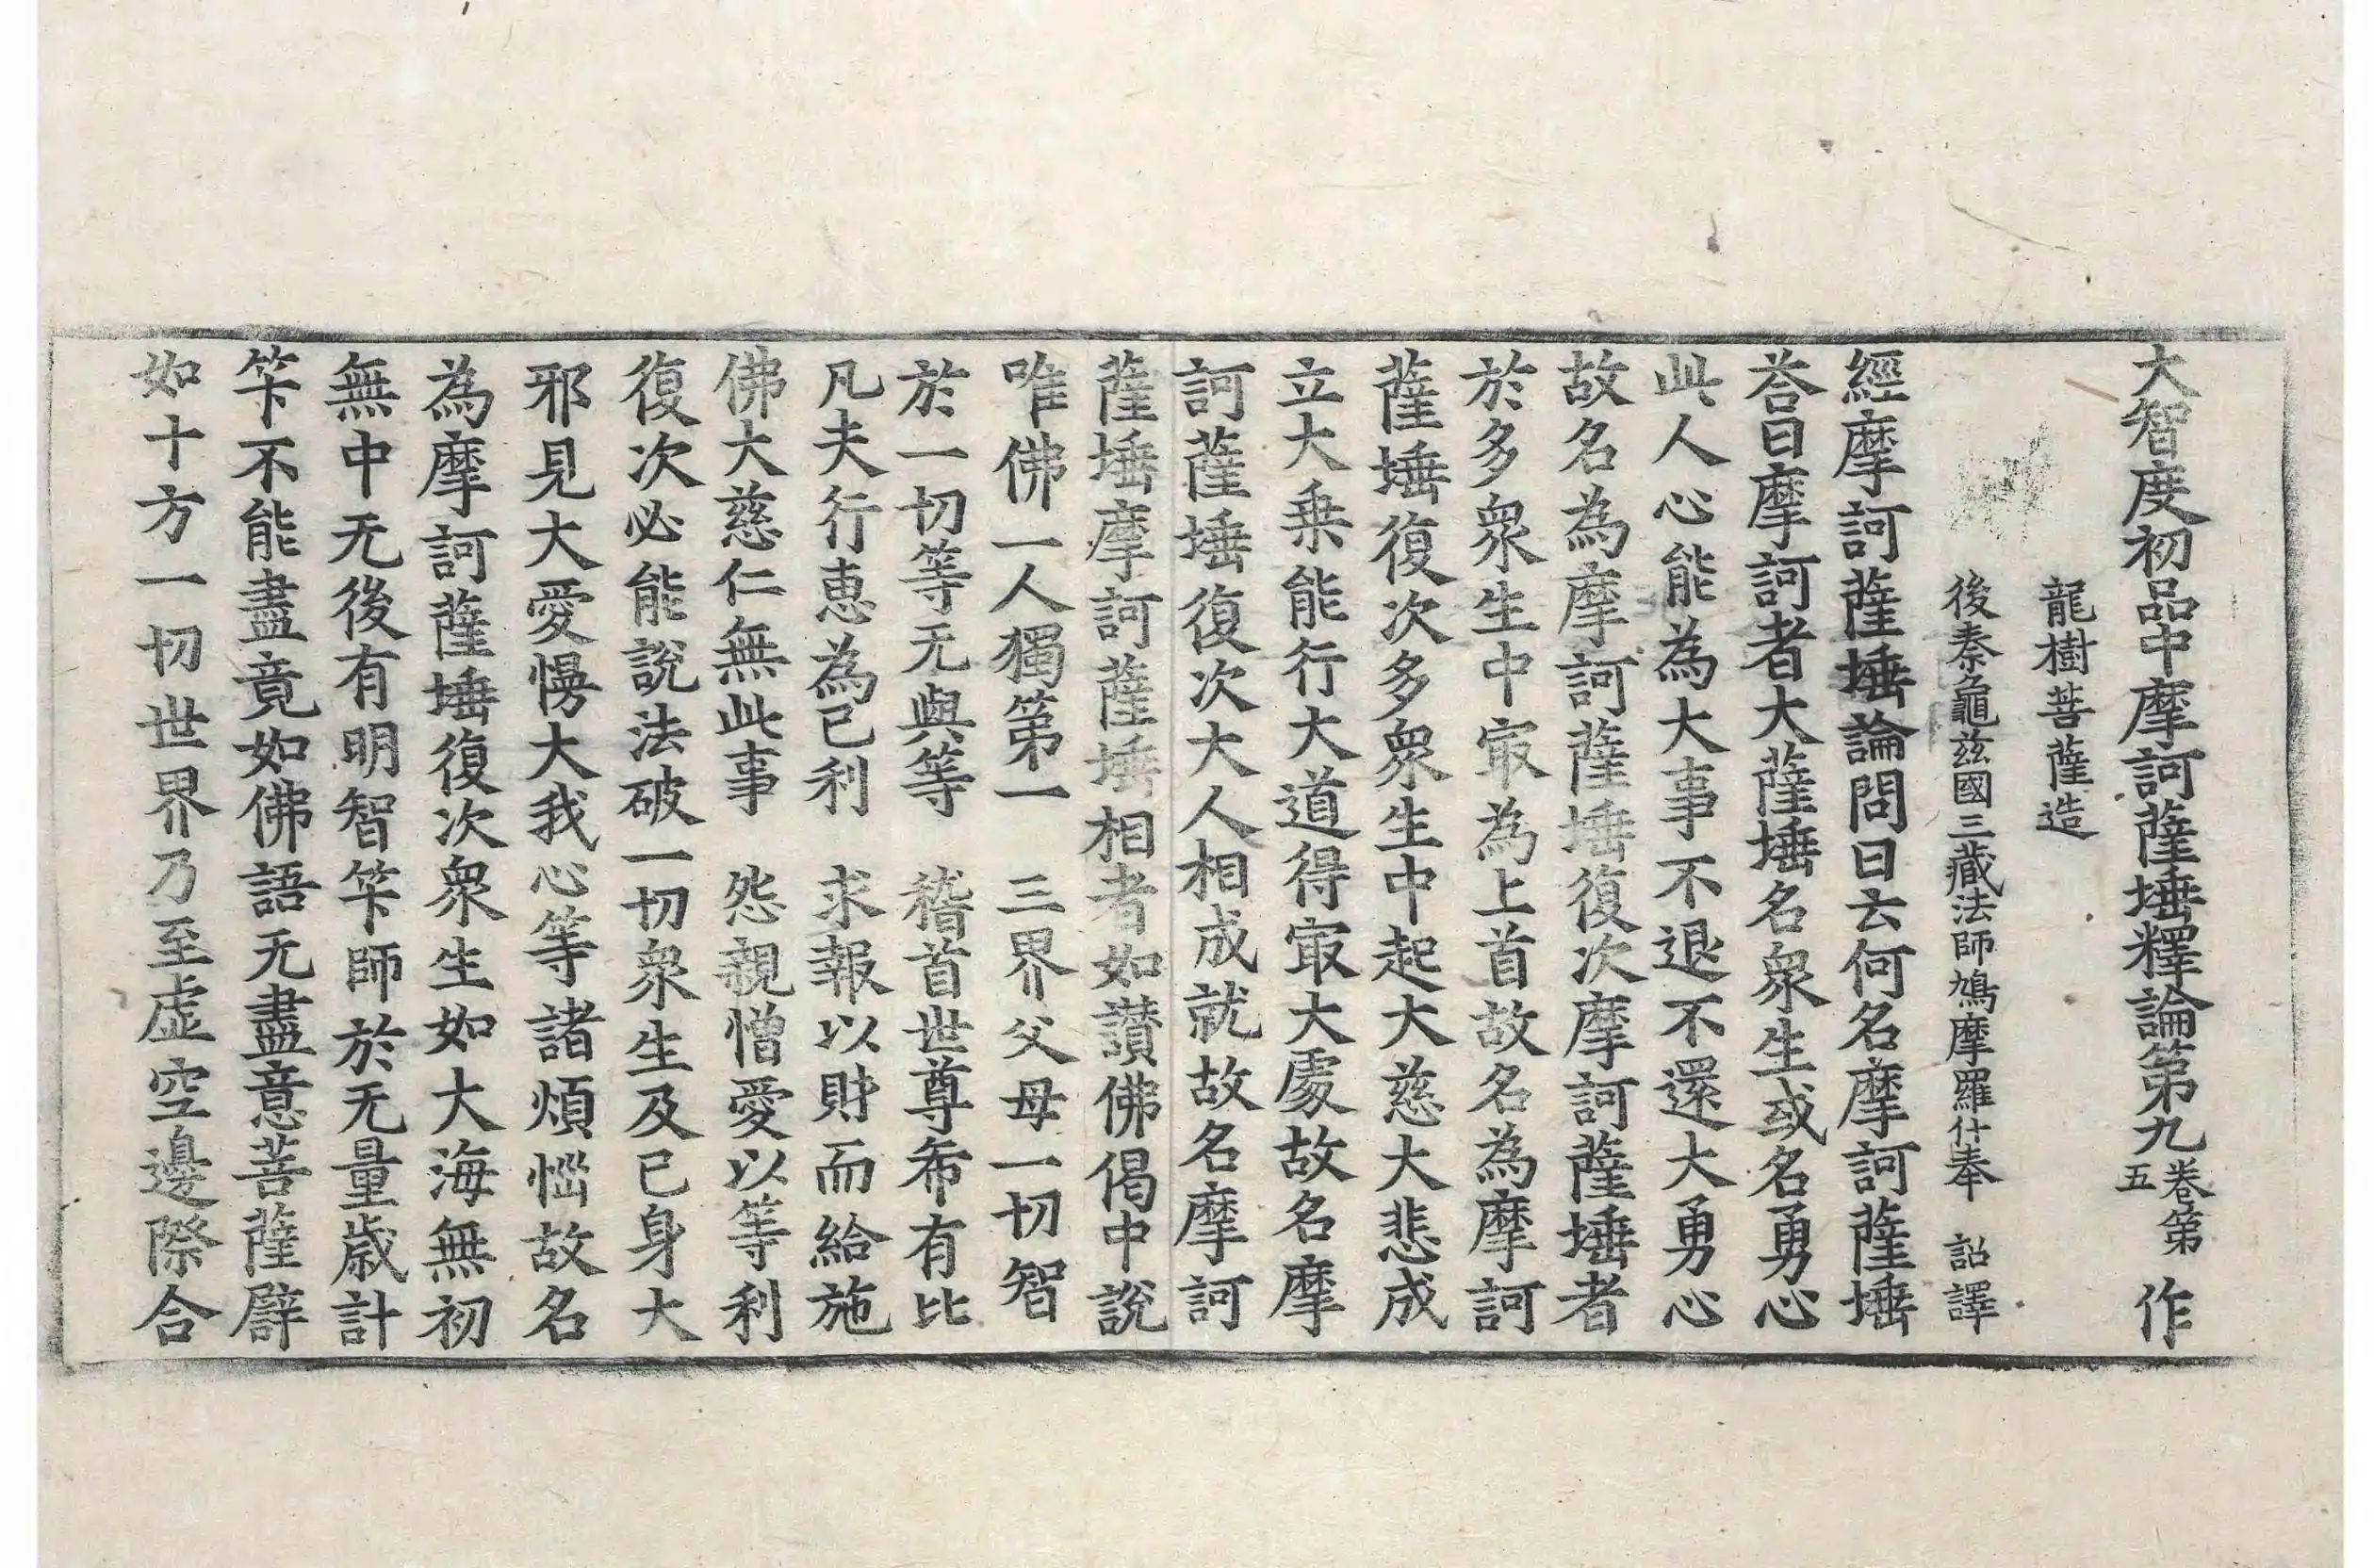 大智度初品中摩訶薩埵釋論第九卷第五 作
龍樹菩薩造
後秦龜茲國三藏法師鳩摩羅什奉 詔譯
經摩訶薩埵論問曰云何名摩訶薩埵
荅曰摩訶者大薩埵名衆生或名勇心
此人心能為大事不退不還大勇心
故名為摩訶薩埵復次摩訶薩埵者
於多衆生中㝡為上首故名為摩訶
薩埵復次多衆生中起大慈大悲成
立大乗能行大道得㝡大處故名摩
訶薩埵復次大人相成就故名摩訶
薩埵摩訶薩埵相者如讃佛偈中說
唯佛一人獨第一 三界父母一切智
於一切等无與等 稽首世尊希有比
凡夫行恵為己利 求報以財而給施
佛大慈仁無此事 怨親憎愛以等利
復次必能說法破一切衆生及己身大
邪見大愛慢大我心等諸煩惱故名
為摩訶薩埵復次衆生如大海無初
無中无後有明智笇師於无量歳計
笇不能盡竟如佛語无盡意菩薩辟
如十方一切世界乃至虛空邊際合